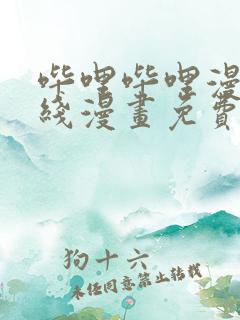 哔哩哔哩漫
线漫畫免費
狗十六
未经同意禁止转载